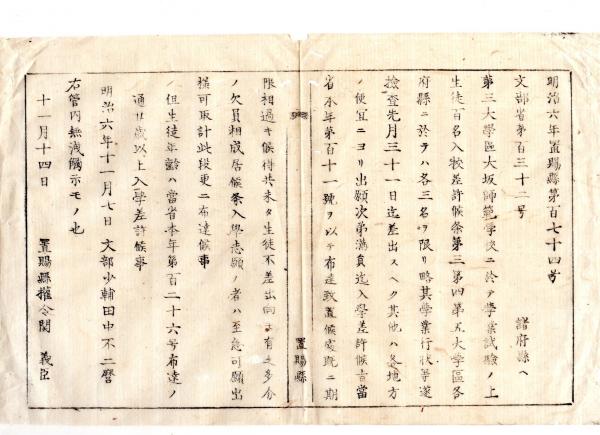 明治六年置賜縣第百七十四号
文部省第百三十二号　諸府縣ヘ
第三大學區大坂師範学校ニ於テ學業試驗ノ上
生徒百名入校差許候条第三第四第五大学區各
府縣ニ於テハ各三名ヲ限リ略其学業行状等遂
撿査先月三十一日迄差出スヘク其他ハ各地方
ノ便宜ニヨリ出願次第満員迄入學差許候旨當
省本年第百十一號ヲ以テ布達致置候處既ニ期
置賜縣
限相過キ候得共未タ生徒不差出向モ有之多分
ノ欠員相成居候条入學志願ノ者ハ至急可願出
様可取計此段更ニ布達候事
但生徒年齢ハ當省本年第百二十六号布達ノ
通廿歳以上入學差許候事
明治六年十一月七日　文部少輔田中不二麿
右管内無洩觸示モノ也
十一月十四日　置賜縣權令関　義臣